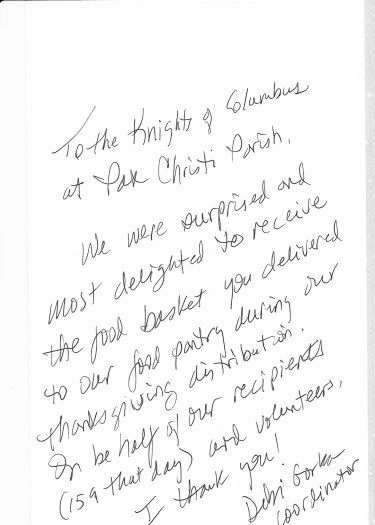 To the Knights of Columbus
at Pax Christi Parish,
We were surprised and
most delighted to receive
the food basket you delivered
to our food pantry during our
thanksgiving distribution.
On behalf of our recipients
(159 that day) and volunteers,
I thank you!
Debi Gorka
coordinator